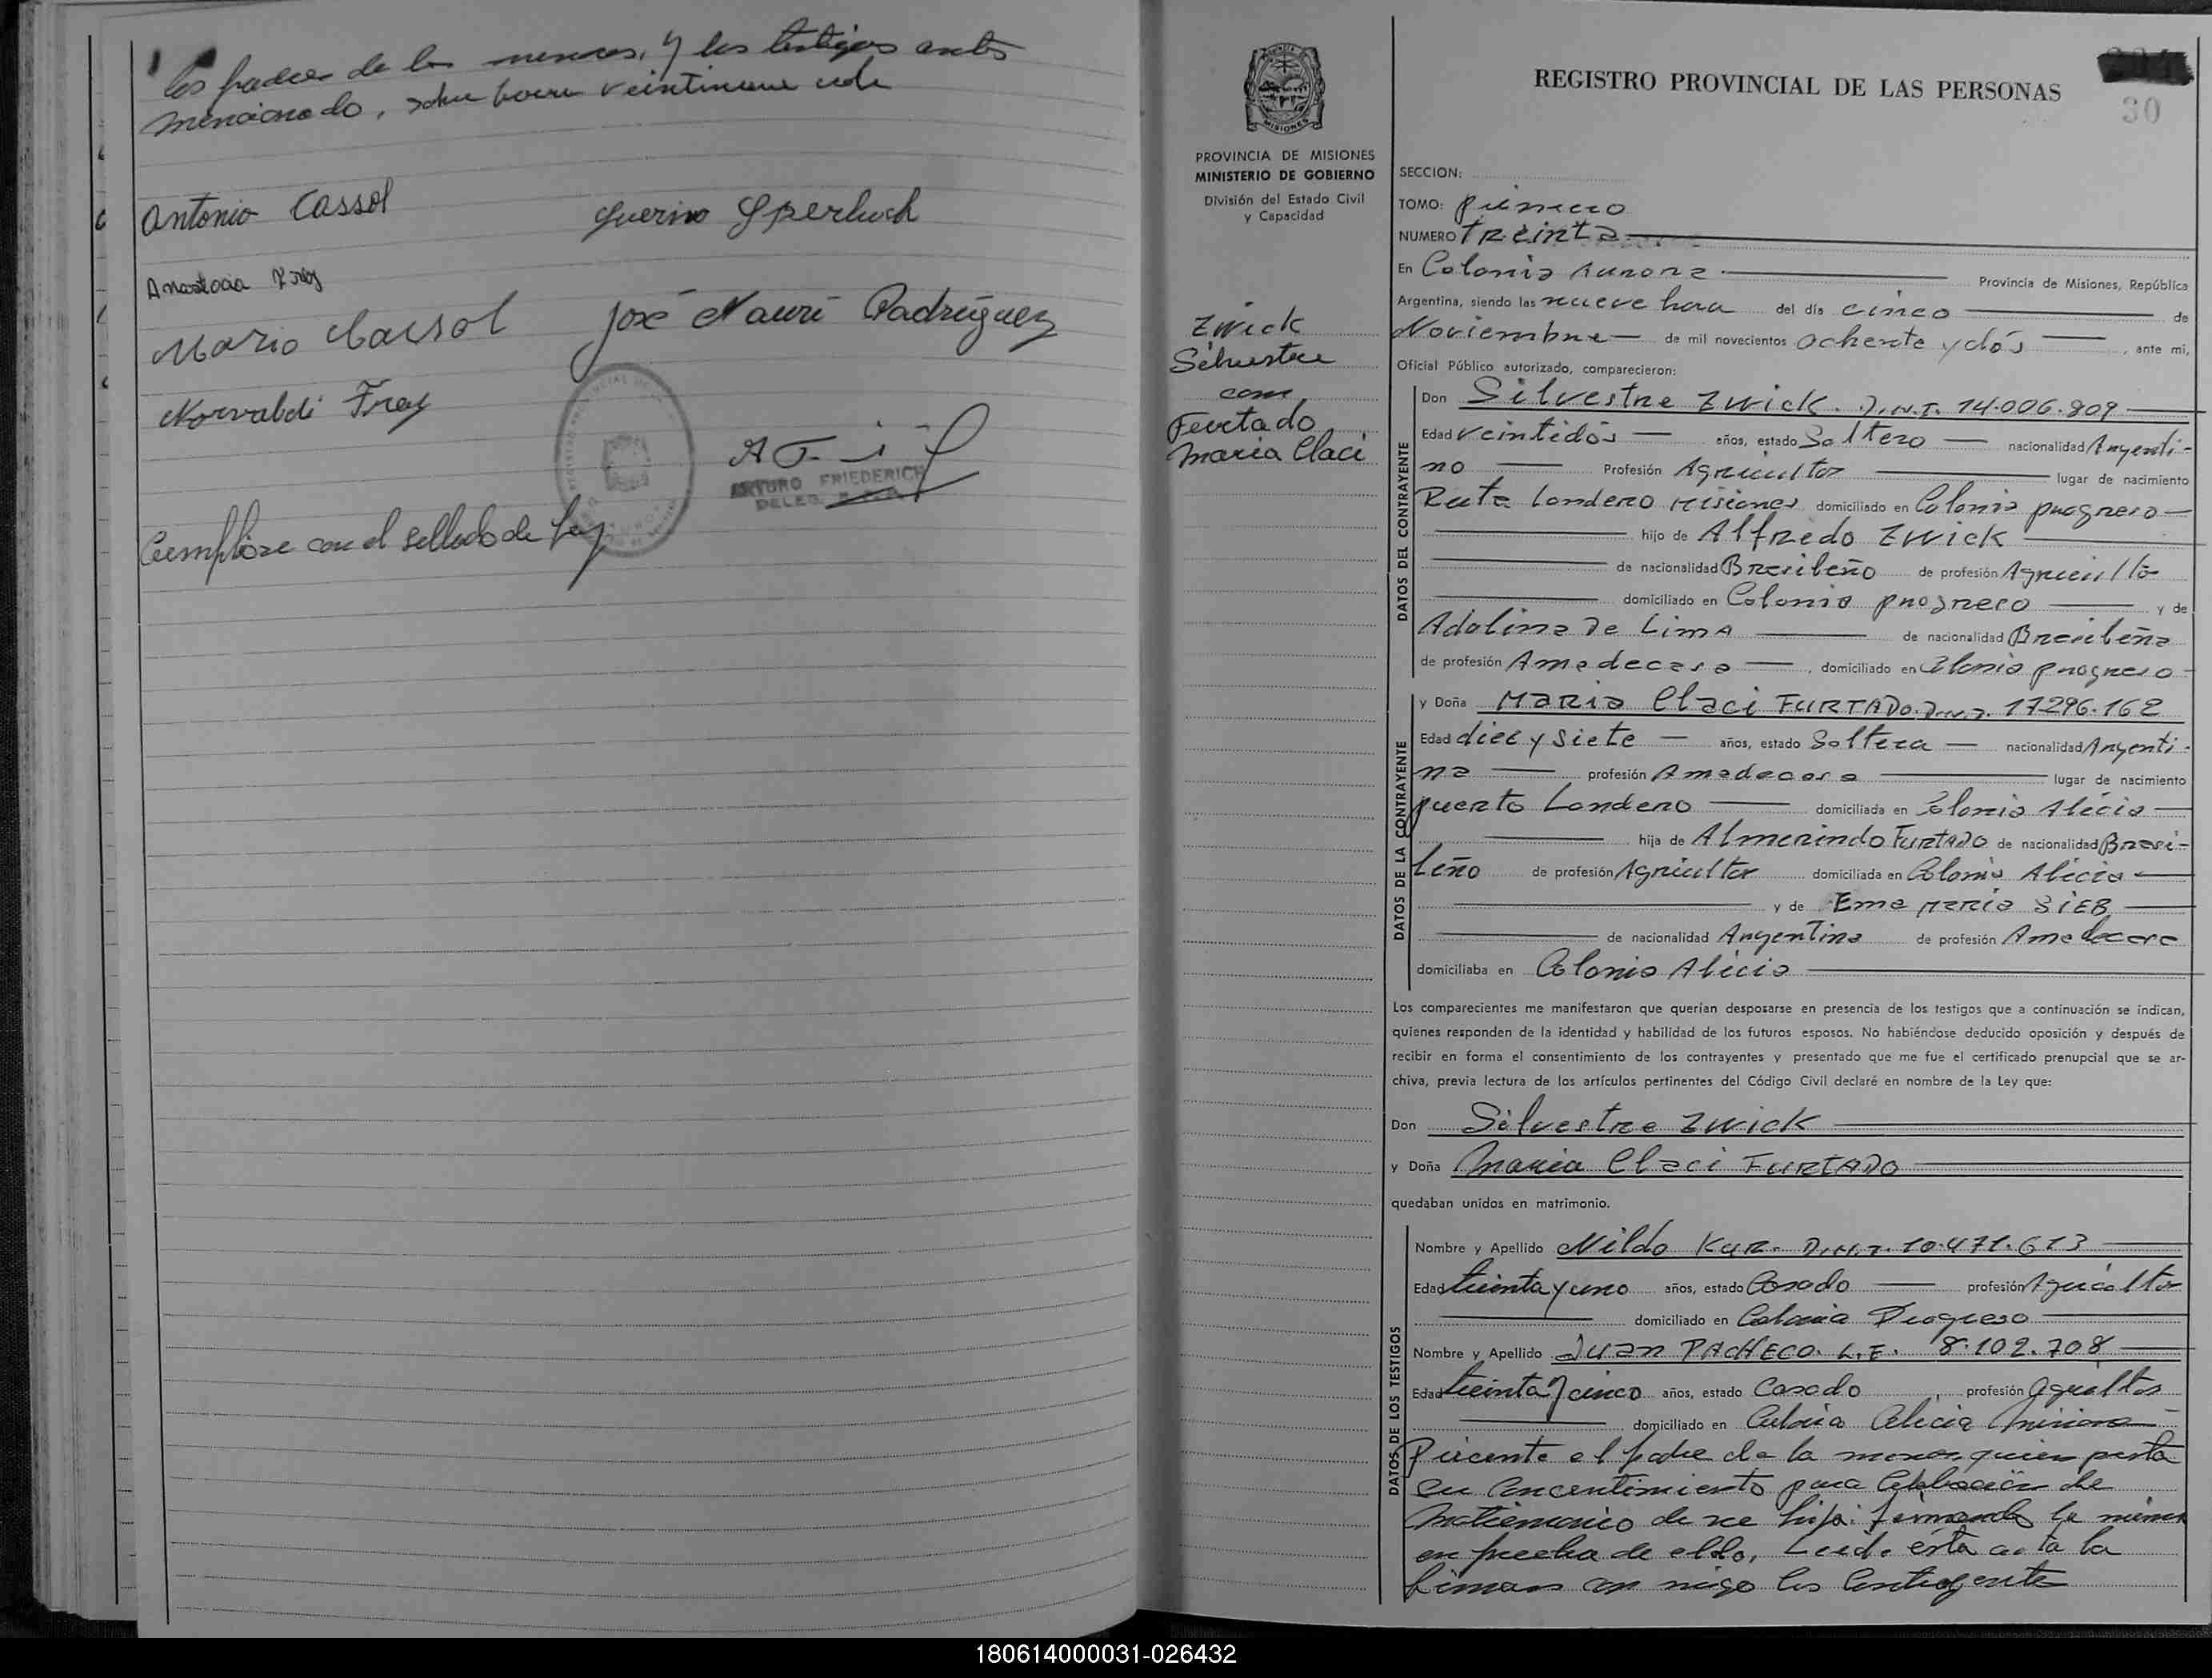 los padres de los menores, y los testigos antes
mencionado, sobre borra veintinueve vale
Antonio Cassol
Guerino Sperluch
Anastacia Frey
Mario Cassol
José Nauri Rodríguez
Norvaldi Frey
ARTURO FRIEDERICH
DELEG.
Cumplióse con el sellado de Ley
PROVINCIA DE MISIONES
MINISTERIO DE GOBIERNO
División del Estado Civil
y Capacidad
Zwick
Silvestre
con
Furtado
Maria Claci
REGISTRO PROVINCIAL DE LAS PERSONAS
30
SECCION:
TOMO: primero
NUMERO Treinta
En Colonia Aurora Provincia de Misiones, República
Argentina, siendo las nueve hora del día cinco de
Noviembre de mil novecientos ochenta y dós, ante mi,
Oficial Público autorizado, comparecieron:
DATOS DEL CONTRAYENTE
Don Silvestre Zwick. D.N.I. 14.006.809
Edad veintidós años, estado Soltero nacionalidad Argenti-
no Profesión Agricultor lugar de nacimiento
Ruta Londero Misiones domiciliado en Colonia progreso
hijo de Alfredo Zwick
de nacionalidad Brasileño de profesión Agricultor
domiciliado en Colonia progreso y de
Adolina De Lima de nacionalidad Brasileña
de profesión Amadecasa, domiciliado en Colonia progreso
DATOS DE LA CONTRAYENTE
y Doña Maria Claci FURTADO. D.N.I. 17296.162
Edad diez y siete años, estado Soltera nacionalidad Argenti-
na profesión Amadecasa lugar de nacimiento
puerto Londero domiciliada en Colonia Alicia
hija de Almerindo FURTADO de nacionalidad Brasi-
leño de profesión Agricultor domiciliada en Colonia Alicia
y de Ema Maria SIEB
de nacionalidad Argentina de profesión Amadecasa
domiciliaba en Colonia Alicia
Los comparecientes me manifestaron que querían desposarse en presencia de los testigos que a continuación se indican,
quienes responden de la identidad y habilidad de los futuros esposos. No habiéndose deducido oposición y después de
recibir en forma el consentimiento de los contrayentes y presentado que me fue el certificado prenupcial que se ar-
chiva, previa lectura de los artículos pertinentes del Código Civil declaré en nombre de la Ley que:
Don Silvestre Zwick
y Doña Maria Claci FURTADO
quedaban unidos en matrimonio.
DATOS DE LOS TESTIGOS
Nombre y Apellido Nildo Kur. D.N.I. 10.471.613
Edad treinta y uno años, estado Casado profesión Agricultor
domiciliado en Colonia Progreso
Nombre y Apellido Juan PACHECO. L.E. 8.102.708
Edad treinta y cinco años, estado Casado, profesión Agricultor
domiciliado en Colonia Alicia Misiones
Presente el padre de la menor, quien presta
su Concentimiento para Celebración de
Matrimonio de su hija: firmando la misma
en prueba de ello, Leida esta acta la
firman con migo los Contrayente
180614000031-026432